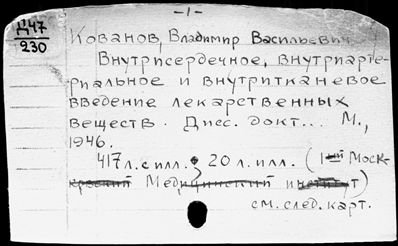 Д47
230
-1-
Кованов, Владимир Васильевич
Внутрисердечное, внутриарте-
риальное и внутритканевое
введение лекарственных
веществ. Дисс. докт... М.,
1946.
417 л. с илл.; 20 л. илл. (1-ый Моск-
Медицинский институт)
см. след. карт.